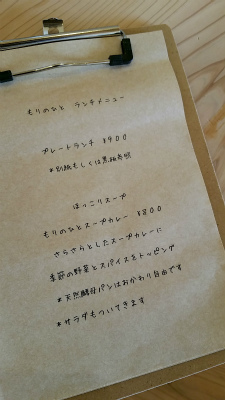 もりのなと ランチメニュー
プレートランチ ¥900
*別紙もしくは黒板参照
ほっこりスープ
もりのなとスープカレー ¥800
さらさらとしたスープカレーに
季節の野菜とスパイスをトッピング
*天然酵母パンはおかわり自由です
*サラダもついてきます